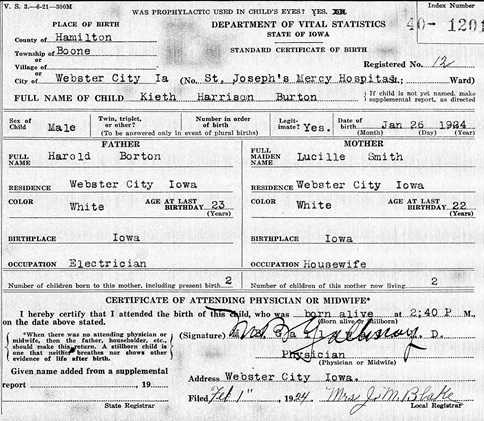 V. S. 3.—6-21—300M
WAS PROPHYLACTIC USED IN CHILD'S EYES? YES.
Index Number
40- 1201
PLACE OF BIRTH
DEPARTMENT OF VITAL STATISTICS
STATE OF IOWA
STANDARD CERTIFICATE OF BIRTH
County of Hamilton
Township of Boone
or
Village of
or
Registered No. 12
City of Webster City Ia (No. St. Joseph's Mercy Hospital St.; Ward)
FULL NAME OF CHILD Kieth Harrison Burton
If child is not yet named, make supplemental report, as directed
Sex of Child Male
Twin, triplet, or other?
Number in order of birth
(To be answered only in event of plural births)
Legitimate? Yes.
Date of birth Jan 26 1924
(Month) (Day) (Year)
FATHER
MOTHER
FULL NAME Harold Borton
FULL MAIDEN NAME Lucille Smith
RESIDENCE Webster City Iowa
RESIDENCE Webster City Iowa
COLOR White AGE AT LAST BIRTHDAY 23 (Years)
COLOR White AGE AT LAST BIRTHDAY 22 (Years)
BIRTHPLACE Iowa
BIRTHPLACE Iowa
OCCUPATION Electrician
OCCUPATION Housewife
Number of children born to this mother, including present birth 2
Number of children of this mother now living 2
CERTIFICATE OF ATTENDING PHYSICIAN OR MIDWIFE*
I hereby certify that I attended the birth of this child, who was born alive at 2;40 P M.,
on the date above stated.
(Born alive or stillborn)
*When there was no attending physician or midwife, then the father, householder, etc., should make this return. A stillborn child is one that neither breathes nor shows other evidence of life after birth.
(Signature) M. D.
Physician
(Physician or Midwife)
Given name added from a supplemental
report , 19
State Registrar
Address Webster City Iowa.
Filed Feb 1" , 1924 Mrs J. M. Blake
Local Registrar